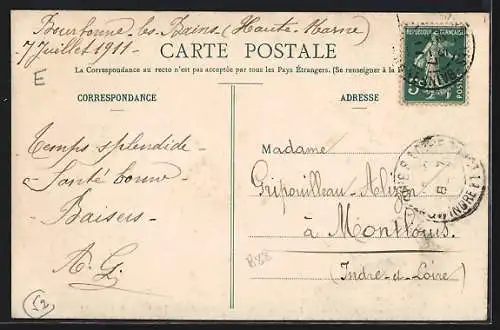 Bourbonne-les-Bains (Haute-Marne)
7 Juillet 1911 -
CARTE POSTALE
La Correspondance au recto n'est pas acceptée par tous les Pays Étrangers. (Se renseigner à la
E
CORRESPONDANCE
ADRESSE
REPUBLIQUE FRANÇAISE
5
POSTES
Temps splendide -
- Santé bonne -
- Baisers -
A. G.
Madame
Gripouilleau-Alizon
à Montlouis
(Indre-et-Loire)
INDRE
B88
52